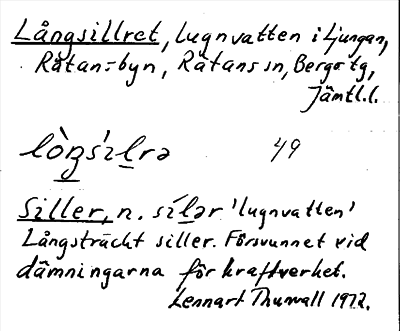 Långsillret, lugnvatten i Ljungan,
Rätan-byn, Rätans sn, Bergs tg,
Jämtl.l.
lòŋsìlrə 49
Siller, n. sílər 'lugnvatten'
Långsträckt siller. Försvunnet vid
dämningarna för kraftverket.
Lennart Thunvall 1972.